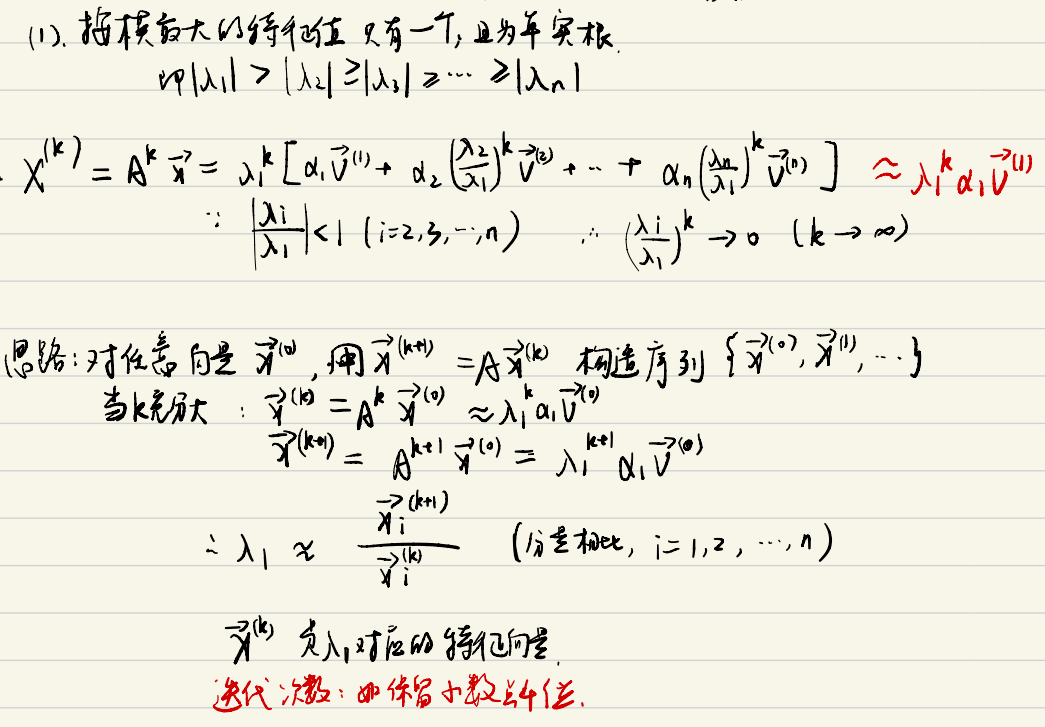 (1). 按模最大的特征值 只有一个, 且为单实根.
即|λ₁| > |λ₂| ≥ |λ₃| ≥ ⋯ ≥ |λn|
X^(k) = A^k x⃗ = λ₁^k [α₁v⃗^(1) + α₂(λ₂/λ₁)^k v⃗^(2) + ⋯ + αn(λn/λ₁)^k v⃗^(n)] ≈ λ₁^k α₁v⃗^(1)
∵ |λi/λ₁| < 1 (i=2,3,⋯,n) ∴ (λi/λ₁)^k → 0 (k → ∞)
思路: 对任意向量 x⃗^(0), 用 x⃗^(k+1) = Ax⃗^(k) 构造序列 {x⃗^(0), x⃗^(1), ⋯}
当k充分大 : x⃗^(k) = A^k x⃗^(0) ≈ λ₁^k α₁v⃗^(0)
x⃗^(k+1) = A^(k+1) x⃗^(0) = λ₁^(k+1) α₁v⃗^(0)
∴ λ₁ ≈ x⃗i^(k+1) / x⃗i^(k) (分量相比, i=1,2,⋯,n)
x⃗^(k) 为λ₁对应的特征向量.
迭代次数: 如保留小数点4位.